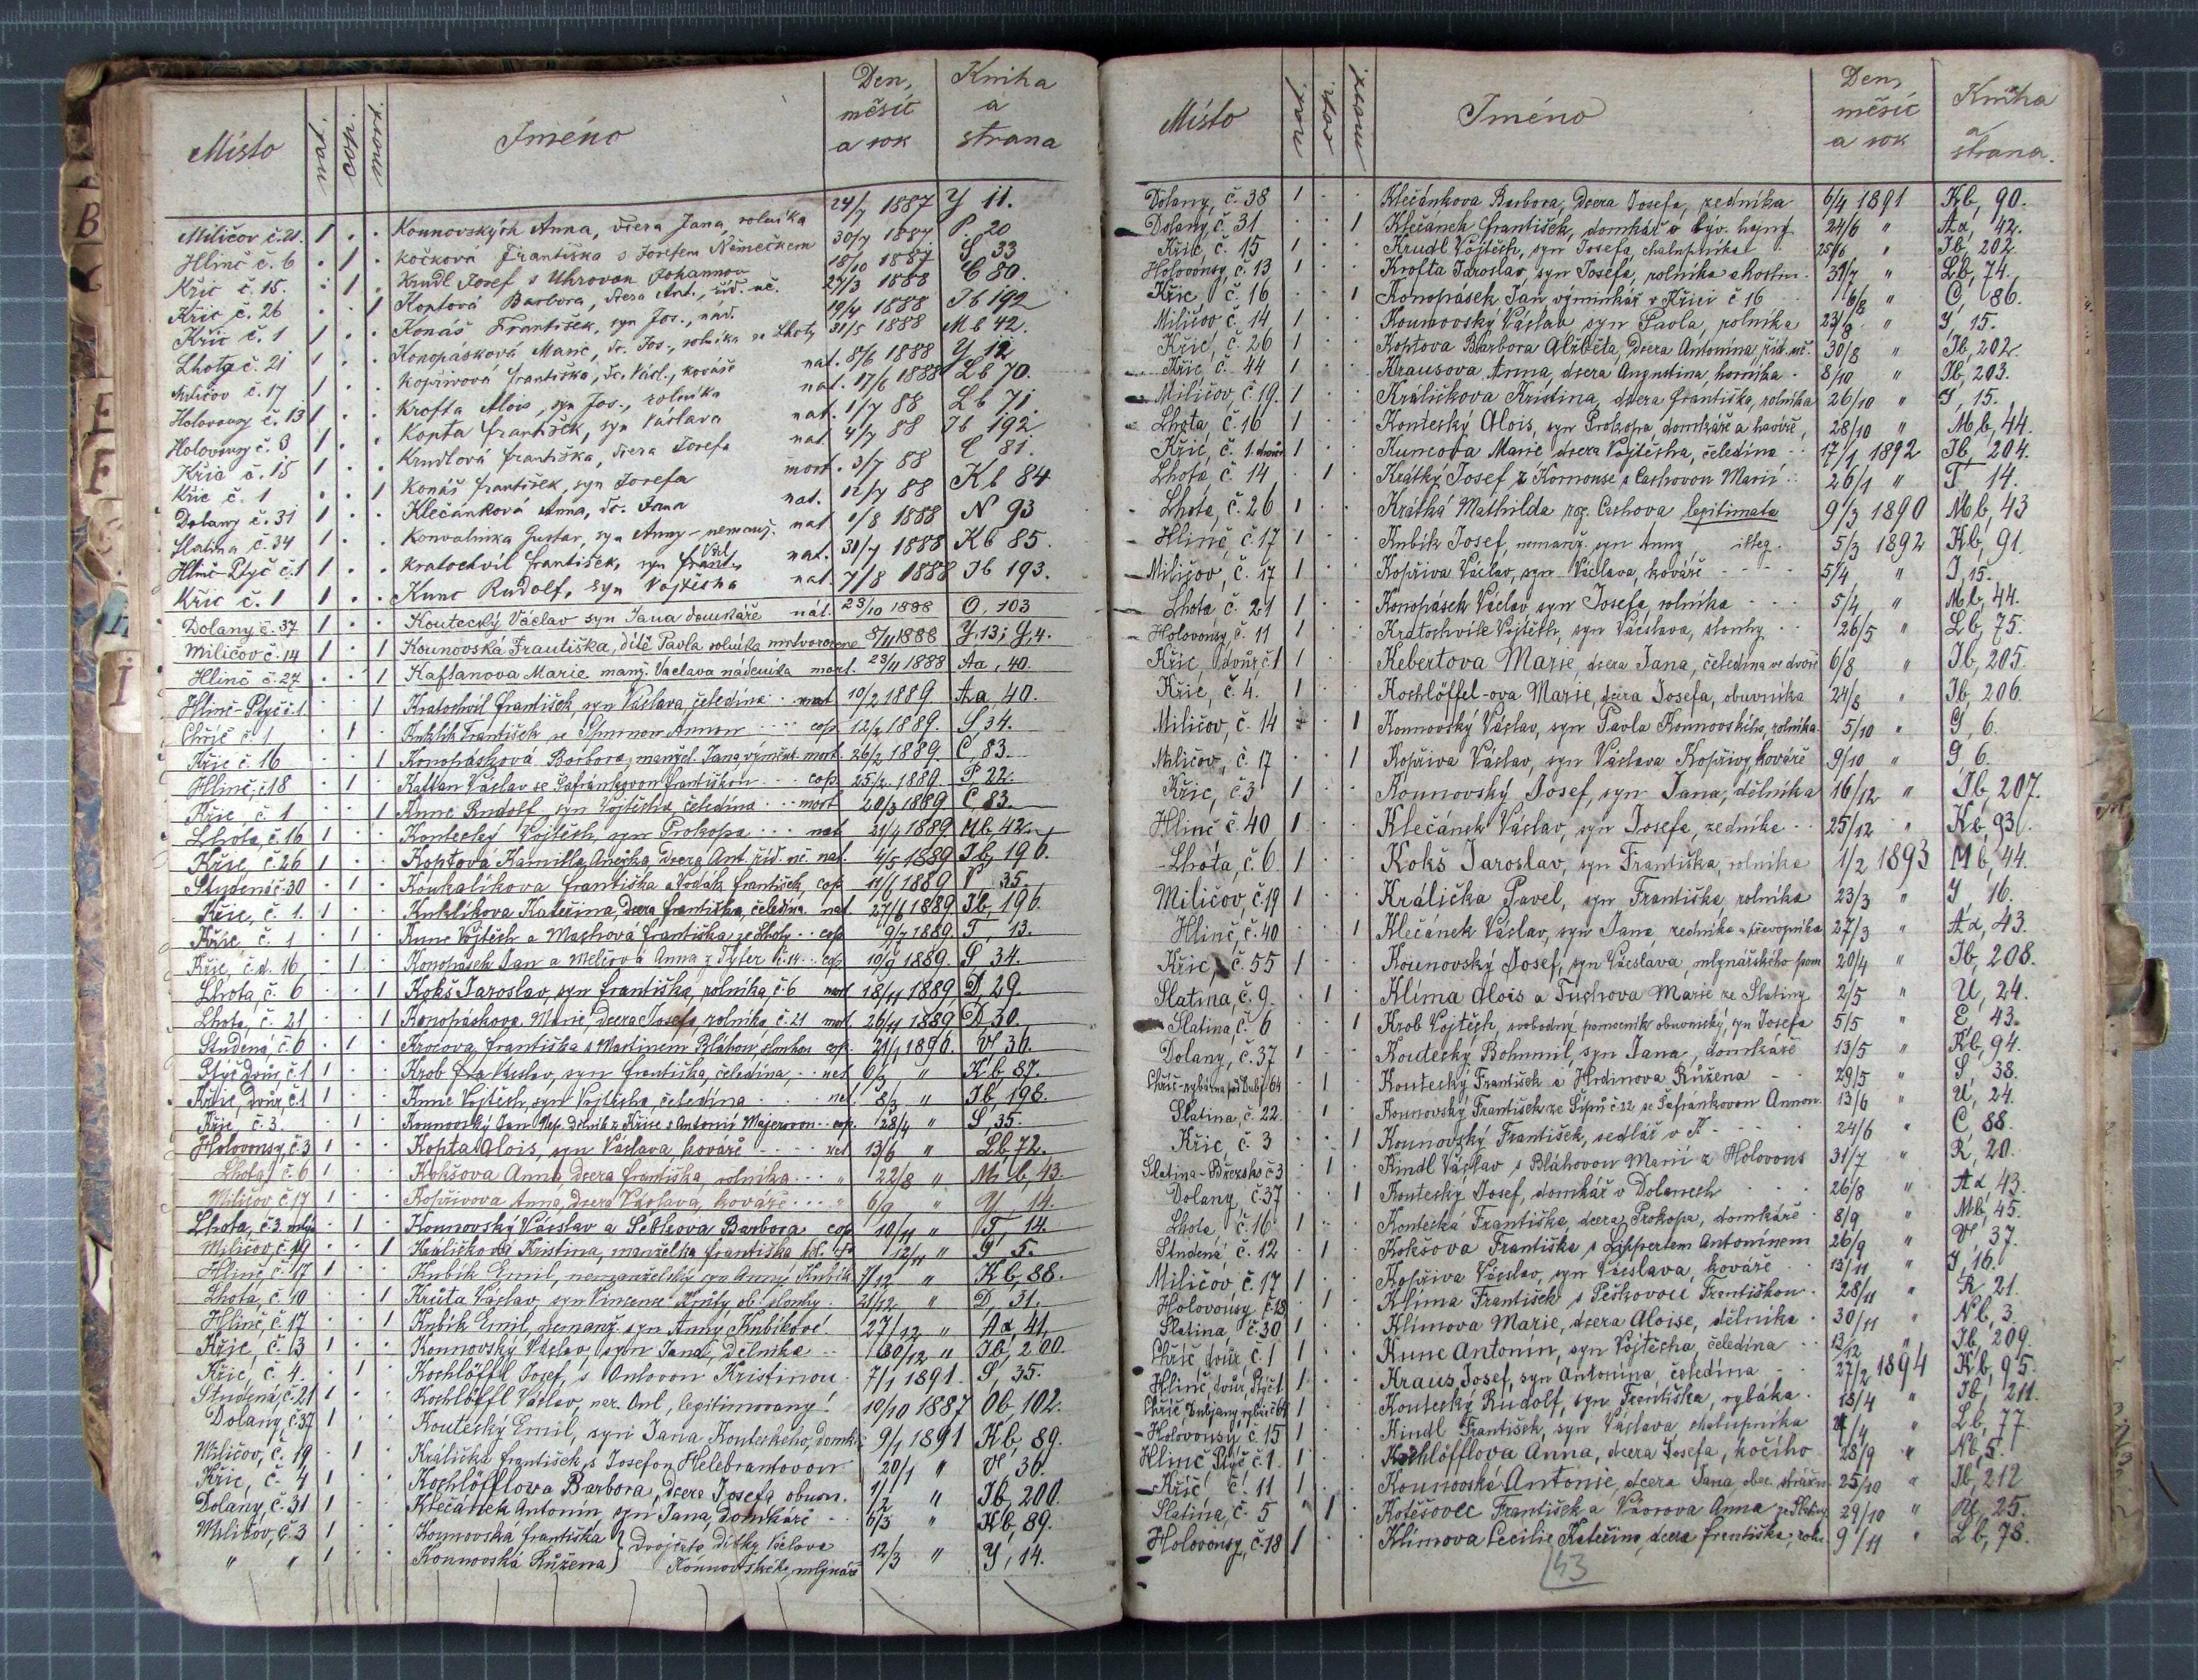 Místo nar. cop. mort. Jméno Den, měsíc a rok Kniha a strana
Miličov č. 21. 1 . . Kounovských Anna, dcera Jana, rolníka 24/7 1887 Y 11.
Hlinč č. 6 . 1 . Kočková Františka s Josefem Němečkem 30/7 1887 P. 20
Křic č. 15. . 1 . Krudl Josef s Uhrovou Johannou 18/10 1887 S 33
Křic č. 26 . . 1 Koptová Barbora, dcera Ant., říd. uč. 27/3 1888 C 80.
Křic č. 1 1 . . Konáš František, syn Jos., nád. 19/4 1888 Ib 192
Lhota č. 21 1 . . Konopásková Marie, dc. Jos., rolníka ze Lhoty 31/5 1888 Mb 42.
Miličov č. 17 1 . . Kopřivová Františka, dc. Václ., kováře nat. 8/6 1888 Y 12
Holovousy č. 13 1 . . Krofta Alois, syn Jos., rolníka nat. 17/6 1888 Lb 70.
Holovousy č. 3 1 . . Kopta František, syn Václava nat. 1/7 88 Lb 71.
Křic č. 15 1 . . Krudlová Františka, dcera Josefa nat. 4/7 88 Ib 192
Křic č. 1 . . 1 Konáš František, syn Josefa mort. 3/7 88 C 81.
Dolany č. 31 1 . . Klečánková Anna, dc. Jana nat. 12/7 88 Kb 84
Slatina č. 34 1 . . Konvalinka Gustav, syn Anny - nemanž. nat 1/8 1888 N 93
Hlinč-Ptyč č. 1 1 . . Kratochvíl František, syn Václ. nat. 30/7 1888 Kb 85.
Křic č. 1 1 . . Kunc Rudolf, syn Vojtěcha nat. 7/8 1888 Ib 193.
Dolany č. 37 1 . . Koutecký Václav syn Jana domkáře nat. 23/10 1888 O, 103
Miličov č. 14 1 . 1 Kounovská Františka, dítě Pavla rolníka mrtvorozené 8/11 1888 Y, 13; G, 4.
Hlinč č. 27 . . 1 Kaftanova Marie manž. Václava nádeníka mort. 29/11 1888 Aa, 40.
Hlinč-Ptyč č. 1 . . 1 Kratochvíl František, syn Václava, čeledína mort 10/2 1889 Aa, 40.
Chříč č. 1 . 1 . Kuklík František se Annou cop 12/2 1889. S 34.
Křic č. 16 . . 1 Konopásková Barbora, manžel. Jana výminkáře mort. 26/2 1889. C 83.
Hlinč, č. 18 . 1 . Kaftan Václav se Šafránkovou Františkou cop. 25/2 1889. P 22.
Křic, č. 1 . . 1 Kunc Rudolf, syn Vojtěcha, čeledína mort 20/3 1889 C 83.
Lhota č. 16 1 . . Koutecký Vojtěch, syn Prokopa nat 21/4 1889 Mb, 42.
Křic, č. 26 1 . . Koptová Kamilla Anežka, dcera Ant. říd. uč. nat. 4/5 1889 Ib, 196.
Studená č. 30 . 1 . Koukalíkova Františka a Vodák František, cop 11/6 1889 V 35
Křic, č. 1. 1 . . Kuklíkova Kateřina, dcera Františka, čeledína. nat 27/6 1889 Ib, 196.
Křic č. 1 . 1 . Kunc Vojtěch a Machová Františka ze Lhoty cop 9/7 1889. T 13.
Křic, č. d. 16 . 1 . Konopásek Jan a Anna cop 10/9 1889. S 34.
Lhota, č. 6 . . 1 Kokš Jaroslav, syn Františka, rolníka, č. 6 mort 18/11 1889 D 29
Lhota, č. 21 . . 1 Konopáskova Marie, dcera Josefa rolníka č. 21 mort. 26/11 1889 D, 30.
Studená, č. 6 . 1 . Františka s Martinem Bláhou, cop. 21/1 1890. V 36.
Ptyč dvůr, č. 1 1 . . Krob Václav, syn Františka, čeledína, nat 6/3 " Kb, 87.
Křic, dvůr, č. 1 1 . . Kunc Vojtěch, syn Vojtěcha, čeledína nat. 8/3 " Ib, 198.
Křic, č. 3. . 1 . Kounovský Jan Nep. dělník z Křice s Antonií Majerovou cop. 28/4 " S, 35.
Holovousy, č. 3 1 . . Kopta Alois, syn Václava, kováře nat 13/6 " Lb, 72.
Lhota, č. 6 1 . . Kokšova Anna, dcera Františka, rolníka " 22/8 " Mb, 43.
Miličov č. 17 1 . . Kopřivova Anna, dcera Václava, kováře " 6/9 " Y, 14.
Lhota, č. 3. mlýn . 1 . Kounovský Václav a Barbora cop 10/11 " T 14.
Miličov, č. 19 . . 1 Králičkova Kristina, manželka Františka 12/11 " G, 5.
Hlinč, č. 17 1 . . Kubík Emil, nemanželský syn Anny Kubík 7/12 " Kb, 88.
Lhota, č. 10 . . 1 Krůta Václav, syn Vincence Krůty ob. slouhy 21/12 " D, 31.
Hlinč, č. 17 . . 1 Kubík Emil, nemanž. syn Anny Kubíkové 27/12 " Aa 41,
Křic, č. 3 1 . . Kounovský Václav, syn Jana, dělníka 30/12 " Ib, 200.
Křic, č. 4. . 1 . Kochlöffl Josef, s Kristinou 7/1 1891. S, 35.
Studená, č. 21 1 . . Kochlöffl Václav, legitimovaný! 10/10 1887 Ob 102.
Dolany, č. 37 1 . . Koutecký Emil, syn Jana Kouteckého, domkáře 9/1 1891 Kb, 89.
Miličov, č. 19 . 1 . Králička František, s Josefou Helebrantovou 20/1 " V, 36.
Křic, č. 4 1 . . Kochlöfflova Barbora, dcera Josefa obuvn. 1/2 " Ib, 200.
Dolany, č. 31 1 . . Klečánek Antonín, syn Jana, domkáře 6/3 " Kb, 89.
Miličov, č. 3 1 . . Kounovska Františka } Dvojčata dítky Václava
" " 1 . . Kounovská Růžena } Kounovského, mlynáře 12/3 " Y, 14.
Místo nar. cop. mort. Jméno Den, měsíc a rok Kniha a strana.
Dolany, č. 38 1 . . Klečánkova Barbora, dcera Josefa, zedníka 6/4 1891 Kb, 90.
Dolany, č. 31 . . 1 Klečánek František, domkář a býv. hajný 24/6 " Aa, 42.
Křic č. 15 1 . . Krudl Vojtěch, syn Josefa, chalupníka 25/6 " Ib, 202.
Holovousy, č. 13 1 . . Krofta Jaroslav, syn Josefa, rolníka a hostin. 31/7 " Lb, 74.
Křic, č. 16 . . 1 Konopásek Jan výminkář v Křici č 16 6/8 " C, 86.
Miličov č. 14 1 . . Kounovský Václav, syn Pavla, rolníka 23/8 " Y, 15.
Křic, č. 26 1 . . Koptova Barbora Alžběta, dcera Antonína, říd. uč. 30/8 " Ib, 202.
Křic č. 44 1 . . Krausova Anna, dcera Augustina, horníka. 8/10 " Ib, 203.
Miličov, č. 19. 1 . . Králíčkova Kristina, dcera Františka, rolníka 26/10 " Y, 15.
Lhota, č. 16 1 . . Koutecký Alois, syn Prokopa, domkáře a havíře, 28/10 " Mb, 44.
Křic, č. 1. dvůr 1 . . Kuncova Marie dcera Vojtěcha, čeledína 17/1 1892 Ib, 204.
Lhota, č 14 . 1 . Krátký Josef z s Cechovou Marií 26/1 " T 14.
Lhota, č. 26 1 . . Krátká Mathilda Cechova legitimata 9/3 1890 Mb, 43
Hlinč, č. 17 1 . . Kubík Josef, nemanž. syn Anny illeg. 5/3 1892 Kb, 91.
Miličov, č. 17 1 . . Kopřiva Václav, syn Václava, kováře 5/4 " Y, 15.
Lhota, č. 21 1 . . Konopásek Václav syn Josefa, rolníka 5/4 " Mb, 44.
Holovousy, č. 11 1 . . Kratochvíle Vojtěch, syn Václava, slouhy 26/5 " Lb, 75.
Křic, dvůr, č. 1 1 . . Kebertova Marie dcera Jana, čeledína ve dvoře 6/8 " Ib, 205.
Křic, č. 4. 1 . . Kochlöffel-ova Marie, dcera Josefa, obuvníka 24/8 " Ib, 206
Miličov, č. 14 . . 1 Kounovský Václav, syn Pavla Kounovského, rolníka 5/10 " G, 6.
Miličov, č. 17 . . 1 Kopřiva Václav, syn Václava Kopřivy, kováře 9/10 " G, 6.
Křic, č 3 1 . . Kounovský Josef, syn Jana, dělníka 16/12 " Ib, 207.
Hlinč č. 40 1 . . Klečánek Václav, syn Josefa, zedníka 25/12 " Kb, 93.
Lhota, č. 6 1 . . Kokš Jaroslav, syn Františka, rolníka 1/2 1893 Mb, 44.
Miličov, č. 19 1 . . Králička Pavel, syn Františka, rolníka 23/3 " Y, 16.
Hlinč, č. 40 . . 1 Klečánek Václav, syn Jana zedníka 27/3 " Aa, 43.
Křic, č. 55 1 . . Kounovský Josef, syn Václava, mlynářského pom 20/4 " Ib, 208.
Slatina, č. 9. . 1 . Klíma Alois a Tuchova Marie ze Slatiny 2/5 " U, 24.
Slatina, č. 6 . . 1 Krob Vojtěch, svobodný pomocník obuvnický, syn Josefa 5/5 " E 43.
Dolany, č. 37 1 . . Koutecký Bohumil, syn Jana, domkáře 13/5 " Kb, 94.
64 . 1 . Koutecký František a Hrdinova Růžena 29/5 " S, 38.
Slatina, č. 22. . 1 . Kounovský František ze č. 22 se Šafránkovou Annou. 13/6 " U, 24.
Křic, č. 3 . . 1 Kounovský František, sedlář v K. 24/6 " C, 88.
Slatina - č. 3 . 1 . Kindl Václav s Bláhovou Marií z Holovous 31/7 " R, 20.
Dolany, č. 37 . . 1 Koutecký Josef, domkář v Dolanech 26/8 " Aa, 43.
Lhota, č. 16 1 . . Koutecká Františka, dcera Prokopa, domkáře 8/9 " Mb, 45.
Studená č. 12 . 1 . Kokšova Františka s Lippertem Antonínem 26/9 " V, 37.
Miličov č. 17 1 . . Kopřiva Václav, syn Václava, kováře 13/11 " Y, 16.
Holovousy, č. 18 . 1 . Klíma František s Peškovou Františkou. 28/11 " R, 21.
Slatina, č. 30 1 . . Klímova Marie, dcera Aloise, dělníka 30/11 " Nb, 3.
Chříč, dvůr, č. 1 1 . . Kunc Antonín, syn Vojtěcha, čeledína 13/12 " Ib, 209
Hlinč, dvůr, Ptyč 1. 1 . . Kraus Josef, syn Antonína, čeledína 27/2 1894 Kb, 95.
1 . . Koutecký Rudolf, syn Františka, rybáka. 18/4 " Ib, 211.
Holovousy č. 15 1 . . Kindl František, syn Václava chalupníka /4 " Lb, 77.
Hlinč Ptyč č. 1. 1 . . Kochlöfflova Anna, dcera Josefa, kočího 28/9 " Nb, 5.
Křic č. 11 1 . . Kounovská Antonie, dcera Jana obec. strážn. 25/10 " Ib, 212
Slatina, č. 5 . 1 . Kotěšovec František a Váorova Anna ze Slatiny 29/10 " U, 25.
Holovousy, č. 18 1 . . Klímova Cecilie Kateřina, dcera Františka, roln. 9/11 " Lb, 78.
43